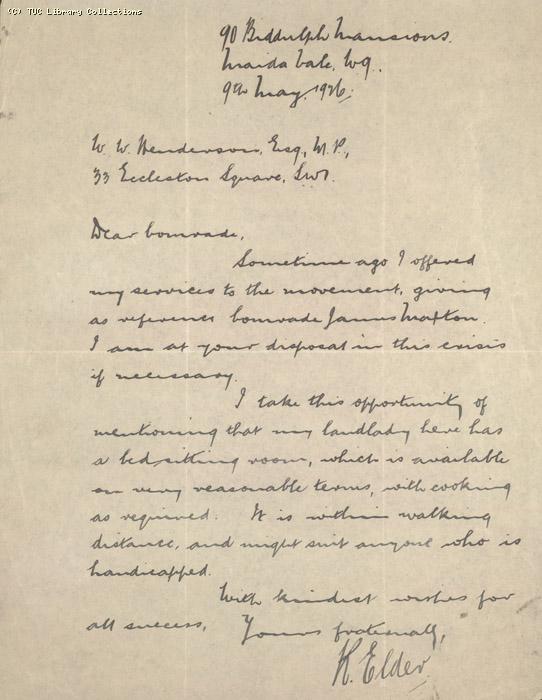 (C) TUC Library Collections
90 Biddulph Mansions.
Maida Vale, W9.
9th May, 1926.
W. W. Henderson, Esq., M.P.,
33 Eccleston Square, SW1.
Dear Comrade,
Sometime ago I offered
my services to the movement, giving
as reference Comrade James Maxton.
I am at your disposal in this crisis
if necessary.
I take this opportunity of
mentioning that my landlady here has
a bed-sitting room, which is available
on very reasonable terms, with cooking
as required. It is within walking
distance, and might suit anyone who is
handicapped.
With kindest wishes for
all success,
Yours fraternally,
K. Elder